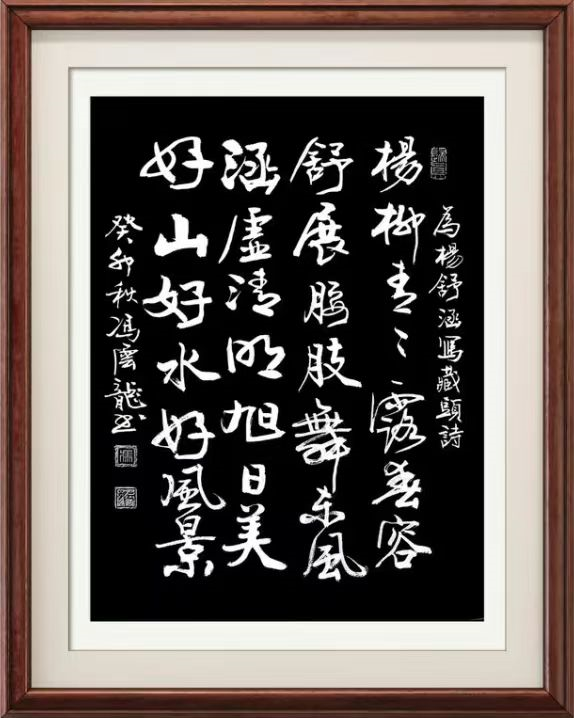 為楊舒涵寫藏頭詩
楊柳青〻露春容
舒展腰肢舞东風
涵虛清明旭日美
好山好水好風景
癸卯秋馮雲龍书